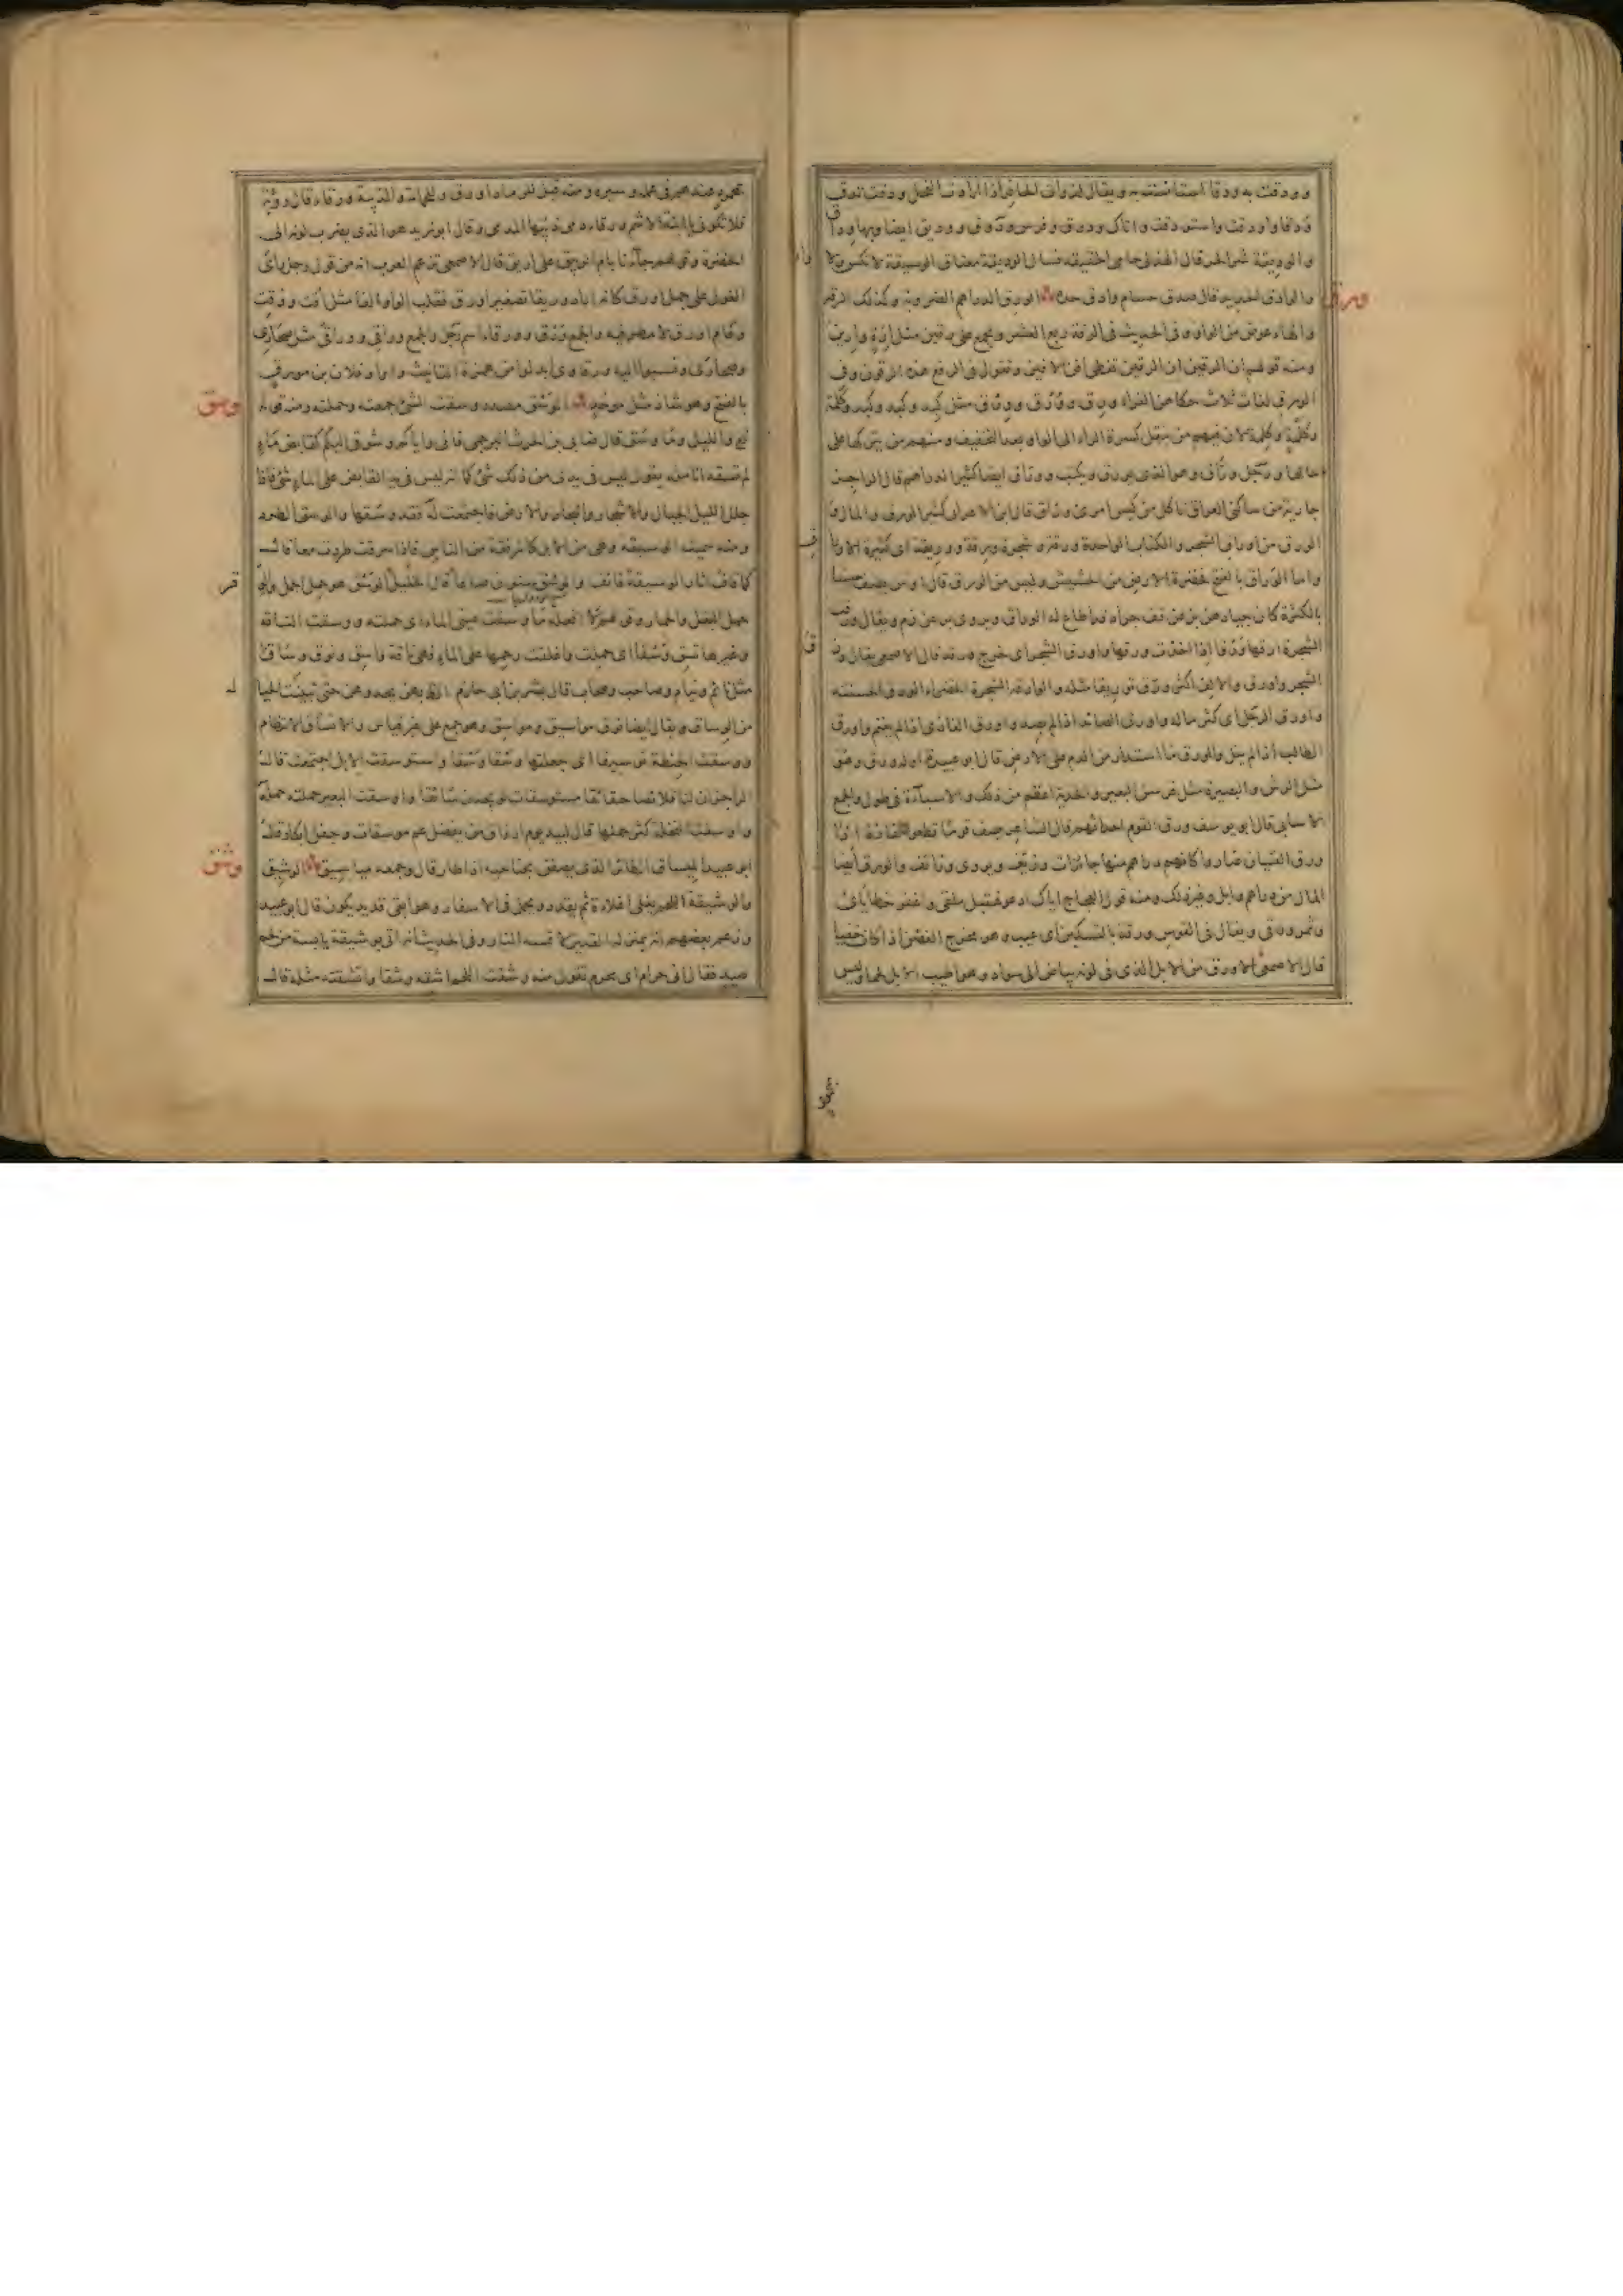 وودقت به ودقا استانست به ويقال لذوات الحافر اذا ارادت الفحل ودقت تدق
ودقا واودقت واستودقت واتان ودوق وفرس ودوق ووديق ايضا وبها وداق
والوديقة شدة الحر قال الهذلى حامى الحقيقة نسال الوديقة معتاق الوسيقة لا نكس ولا وا
والوادق الحديد قال صدق حسام وادق حده الورق الدراهم المضروبة وكذلك الرقة
ورق
والهاء عوض من الواو وفى الحديث فى الرقة ربع العشر ويجمع على رقين مثل ارة وارين
ومنه قولهم ان الرقين تغطى افن الافين وتقول فى الرفع هذه الرقون وفى
الورق لغات ثلاث حكاهن الفراء ورق وورق وورق مثل كبد وكبد وكبد وكلمة
وكلمة وكلمة لان فيهم من ينقل كسرة الراء الى الواو بعد التخفيف ومنهم من يتركها على
حالها ورجل وراق وهو الذى يورق ويكتب ووراق ايضا كثير الدراهم قال الراجز
جارية من ساكنى العراق تاكل من كيس امرئ وراق قال ابن الاعرابى كثير الورق والمال و
الورق من اوراق الشجر والكتاب الواحدة ورقة وشجرة ورقة ووريقة اى كثيرة الاوراق
واما الوراق بالفتح خضرة الارض من الحشيش وليس من الورق قال اوس يصف جيشا
بالكثرة كان جيادهن برعن قف جراد قد اطاع له الوراق ويروى من زم ويقال ورقت
الشجرة ارقها ورقا اذا اخذت ورقها واورق الشجر اى خرج ورقه قال الاصمعى يقال ورق
الشجر واورق والالف اكثر وورق توريقا مثله والوارقة الشجرة الخضراء الورق الحسنته
واورق الرجل اى كثر ماله واورق الصائد اذا لم يصد واورق الغازى اذا لم يغنم واورق
الطالب اذا لم ينل والورق ما استدار من الدم على الارض قال ابو عبيدة اوله ورق وهو
مثل الرش والبصيرة مثل فرسن البعير والجدية اعظم من ذلك والاسباءة فى طول والجمع
الاسابى قال ابو يوسف ورق القوم احداثهم قال الشاعر يصف قوما قطعوا مفازة اذا
ورق الفتيان صاروا كانهم دراهم منها جائزات وزيف ويروى وزائف والورق ايضا
المال من دراهم وابل وغير ذلك ومنه قول العجاج اياك ادعو فتقبل ملقى واغفر خطاياى
وثمر ورقى ويقال فى القوس ورقة بالتسكين اى عيب وهو مخرج الغصن اذا كان خفيا
قال الاصمعى الاورق من الابل الذى فى لونه بياض الى سواد وهو اطيب الابل لحما وليس
بمحمود
بمحمود عنده فى عمله وسيره ومنه قيل للرماد اورق وللحمامة والذئبة ورقاء قال رؤبة
فلا تكونى يا ابنة الاشم ورقاء دمى ذئبها المدمى وقال ابو زيد هو الذى يضرب لونه الى
الخضرة وقولهم جاءنا بام الربيق على اريق قال الاصمعى تزعم العرب انه من قول رجل راى
الغول على جمل اورق كانه اراد وريقا تصغير اورق فقلب الواو الفا مثل اقت ووقت
وعام اورق لا مطر فيه والجمع ورق وورقاء اسم رجل والجمع وراقى ووراق مثل صحارى
وصحارى ونسبوا اليه ورقاوى ابدلوا من همزة التانيث واوا وفلان بن مورق
بالفتح وهو شاذ مثل موحد الوسق مصدر وسقت الشئ جمعته وحملته ومنه قوله
وسق
تع والليل وما وسق قال ضابى بن الحرث البرجمى فانى واياكم وشوقا اليكم كقابض ماء
لم تسقه انامله يقول ليس فى يدى من ذلك شئ كما انه ليس فى يد القابض على الماء شئ فاذا
جلل الليل الجبال والاشجار والبحار والارض فاجتمعت له فقد وسقها والوسق الطرد
ومنه سميت الوسيقة وهى من الابل كالرفقة من الناس فاذا سرقت طردت معا قال
كما قاف اثار الوسيقة قائف والوسق ستون صاعا قال الخليل الوسق هو حمل الجمل والوقر
حمل البغل والحمار وقولهم لا افعله ما وسقت عينى الماء اى حملته ووسقت الناقة
وغيرها تسق وسقا اى حملت واغلقت رحمها على الماء فهى ناقة واسق ونوق وساق
مثل نائم ونيام وصاحب وصحاب قال بشر بن ابى خازم الظ بهن يحدوهن حتى تبينت الحيال
من الوساق ويقال ايضا نوق مواسيق ومواسق وهو جمع على غير قياس والاتساق الانتظام
ووسقت الحنطة توسيقا اى جعلتها وسقا وسقا واستوسقت الابل اجتمعت قال
الراجز ان لنا قلائصا حقائقا مستوسقات لو يجدن سائقا واوسقت البعير حملته حمله
واوسقت النخلة كثر حملها قال لبيد يوم ارزاق من يفضل عم موسقات وحفل ابكار قال
ابو عبيد الميساق الطائر الذى يصفق بجناحيه اذا طار قال وجمعه مياسيق الوشيق
وشق
والوشيقة اللحم يغلى اغلاءة ثم يقدد ويحمل فى الاسفار وهو ابقى قديد يكون قال ابو عبيد
وزعم بعضهم انه بمنزلة القديد لا تمسه النار وفى الحديث انه اتى بوشيقة يابسة من لحم
صيد فقال انى حرام اى محرم تقول منه وشقت اللحم اشقه وشقا واتشقته مثله قال